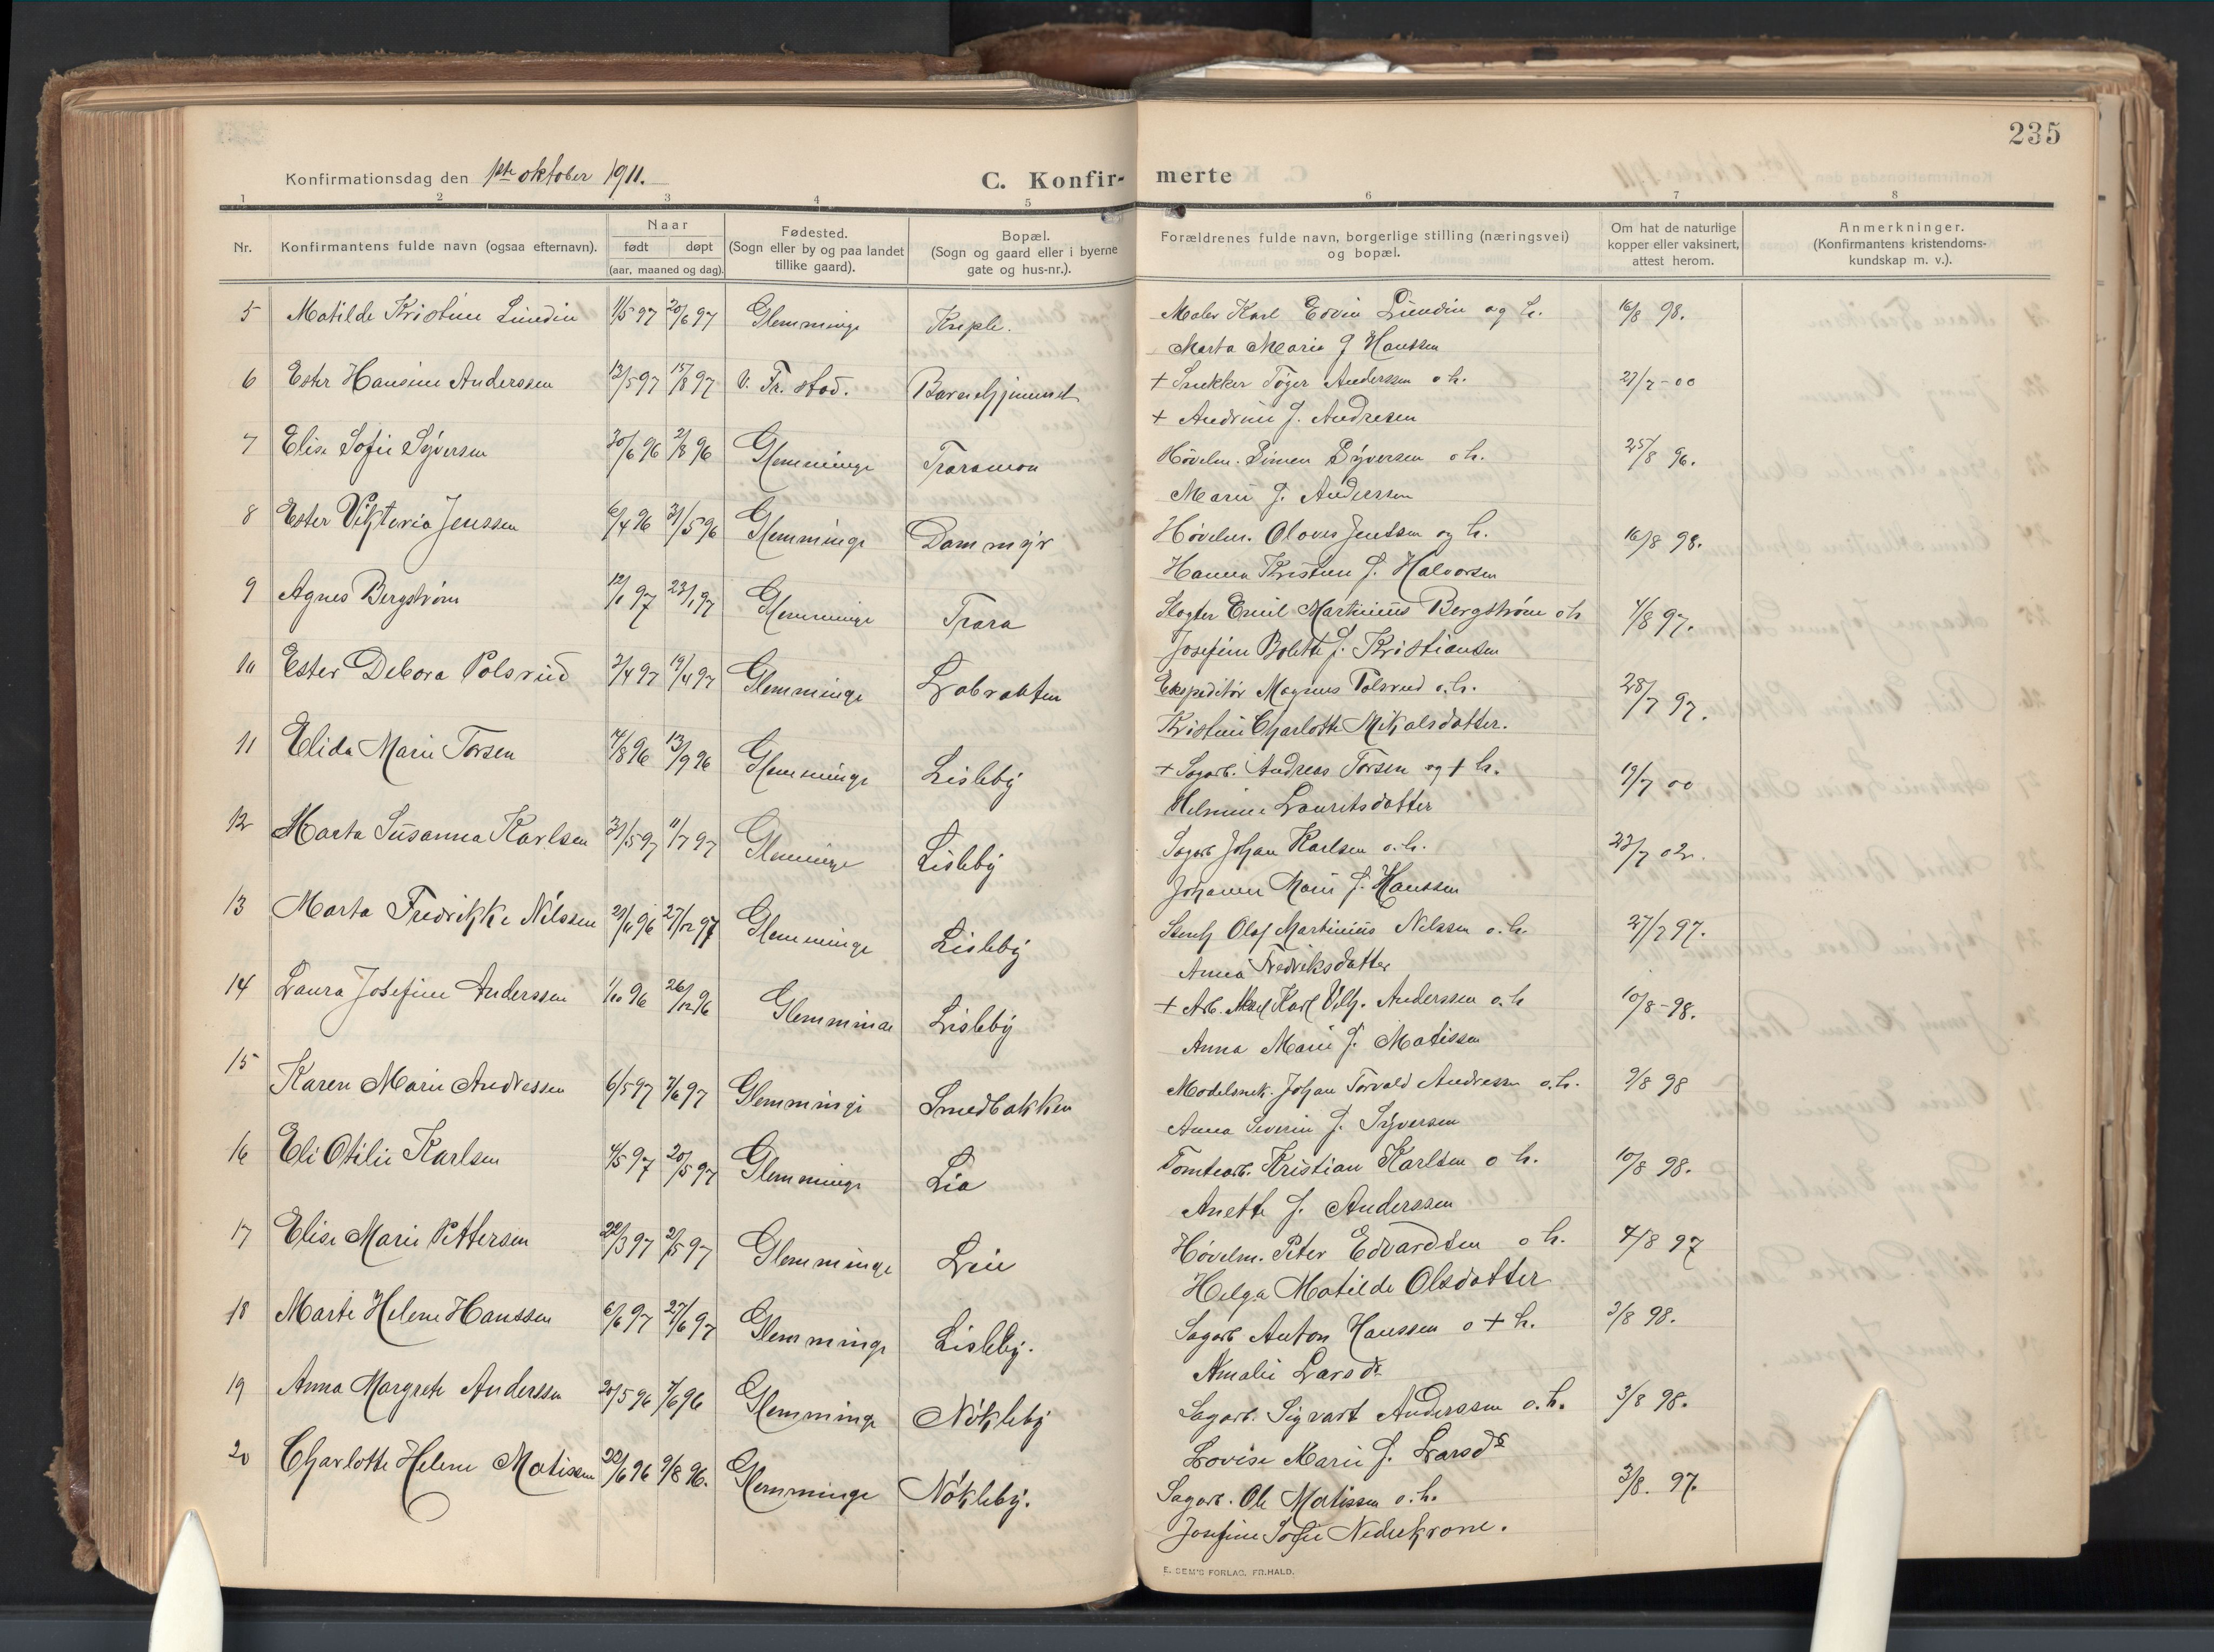 235
Konfirmationsdag den 1ste oktober 1911.
C. Konfir- merte
1 2 3 4 5 6 7 8
Nr.
Konfirmantens fulde navn (ogsaa efternavn).
Naar
født døpt
(aar, maaned og dag).
Fødested.
(Sogn eller by og paa landet
tillike gaard).
Bopæl.
(Sogn og gaard eller i byerne
gate og hus-nr.).
Forældrenes fulde navn, borgerlige stilling (næringsvei)
og bopæl.
Om hat de naturlige
kopper eller vaksinert,
attest herom.
Anmerkninger.
(Konfirmantens kristendoms-
kundskap m. v.).
5 Matilde Kristine Lundin 11/5 97 20/6 97 Glemminge Kniple. Maler Karl Edvin Lundin og h. 16/8 98.
Marta Maria f Hanssen
6 Ester Hansine Anderssen 13/5 97 15/8 97 V. Fr. stad. Barnehjemmet + Snekker Tøger Anderssen o h. 27/7 - 00
+ Andrine f. Andresen
7 Elise Sofie Syversen 30/6 96 2/8 96 Glemminge Traramon Høvelm. Simen Syversen o h. 25/8 96.
Marie f. Anderssen
8 Ester Viktoria Jenssen 6/4 96 31/5 96 Glemminge Dammyr Høvelm. Olaves Jenssen og h. 16/8 98.
Hanna Kristine f. Halvorsen
9 Agnes Bergstrøm 12/1 97 23/1 97 Glemminge Trara Slagter Emil Martinius Bergstrøm o h 4/8 97.
Josefine Bolette f. Kristiansen
10 Ester Debora Polsrud 2/4 97 19/4 97 Glemminge Labrakten Ekspeditør Magnus Polsrud o. h. 28/7 97.
Kristine Charlotte Mikalsdatter.
11 Elida Marie Torsen 4/8 96 13/9 96 Glemminge Lisleby + Sagarb. Andreas Torsen og + h. 19/7 00
Helmine Lauritsdatter
12 Marta Susanna Karlsen 31/5 97 11/7 97 Glemminge Lisleby Sagarb Johan Karlsen o. h. 23/7 02.
Johanne Marie f. Hanssen
13 Marta Fredrikke Nilssen 29/11 96 27/12 97 Glemminge Lisleby Stenh Olaf Martinius Nilssen o. h. 27/7 97.
Anna Fredriksdatter
14 Laura Josefine Anderssen 1/10 96 26/12 96 Glemminge Lisleby + Arb. Aksel Karl Vilh. Anderssen o. h 10/8 - 98.
Anna Marie f. Matissen
15 Karen Marie Andressen 6/5 97 7/6 97 Glemminge Smedbakken Modelsnek. Johan Torvald Andressen o. h. 9/8 98
Anna Severine f. Syversen
16 Eli Otilie Karlsen 4/5 97 20/5 97 Glemminge Lia Tomtearb. Kristian Karlsen o h. 10/8 98.
Anette f. Anderssen
17 Elise Marie Pettersen 22/3 97 2/5 97 Glemminge Leie Høvelm. Peter Edvardsen o h. 4/8 97
Helga Matilde Olsdatter
18 Marte Helene Hanssen 6/6 97 27/6 97 Glemminge Lisleby. Sagarb Anton Hanssen o + h. 3/8 98.
Amalie Larsdr
19 Anna Margrete Anderssen 20/5 96 7/6 96 Glemminge Nökleby Sagarb. Sigvart Anderssen o. h. 3/8 98.
Lovise Marie f. Larsdr
20 Charlotte Helene Matissen 22/6 96 9/8 96. Glemminge Nökleby. Sagarb. Ole Matissen o. h. 3/8. 97.
Josefine Sofie Nederkrone.
E. SEM'S FORLAG, FR.HALD.